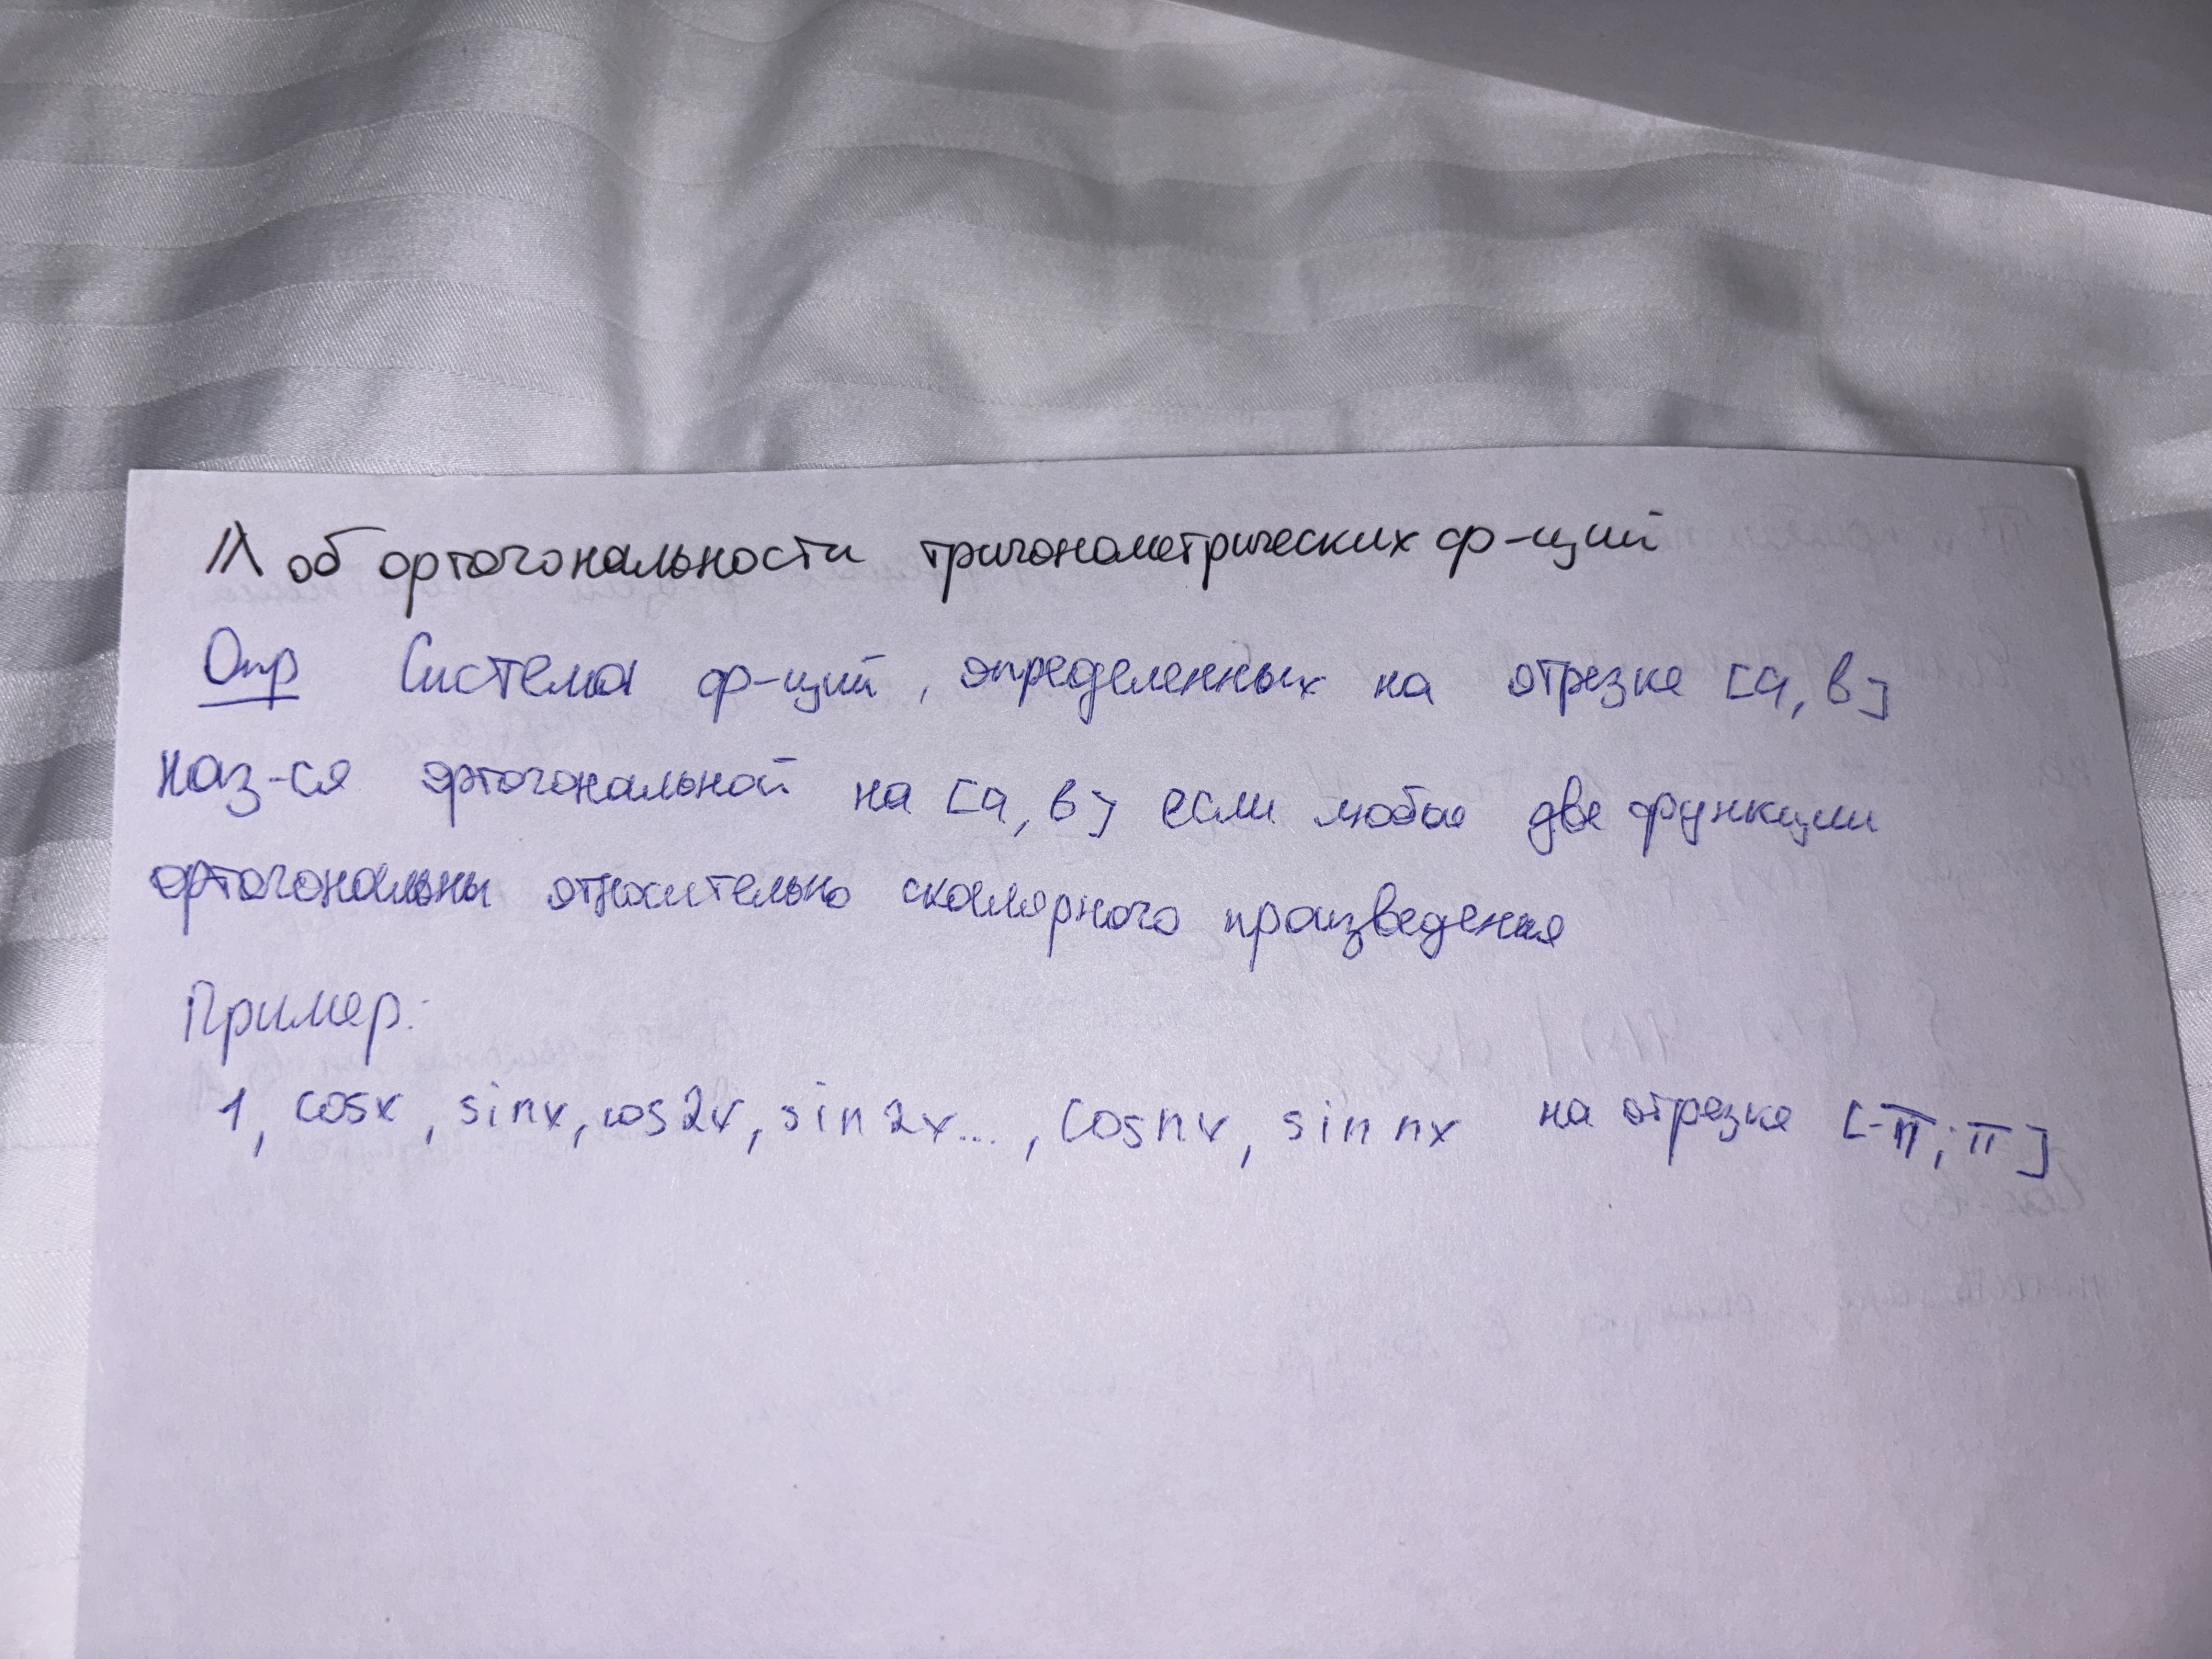 Л об ортогональности тригонометрических ф-ций
Опр Система ф-ций, определенных на отрезке [a, b]
наз-ся ортогональной на [a, b] если любые две функции
ортогональны относительно скалярного произведения
Пример:
1, cosx, sinx, cos2x, sin2x..., cosnx, sin nx на отрезке [-π; π]